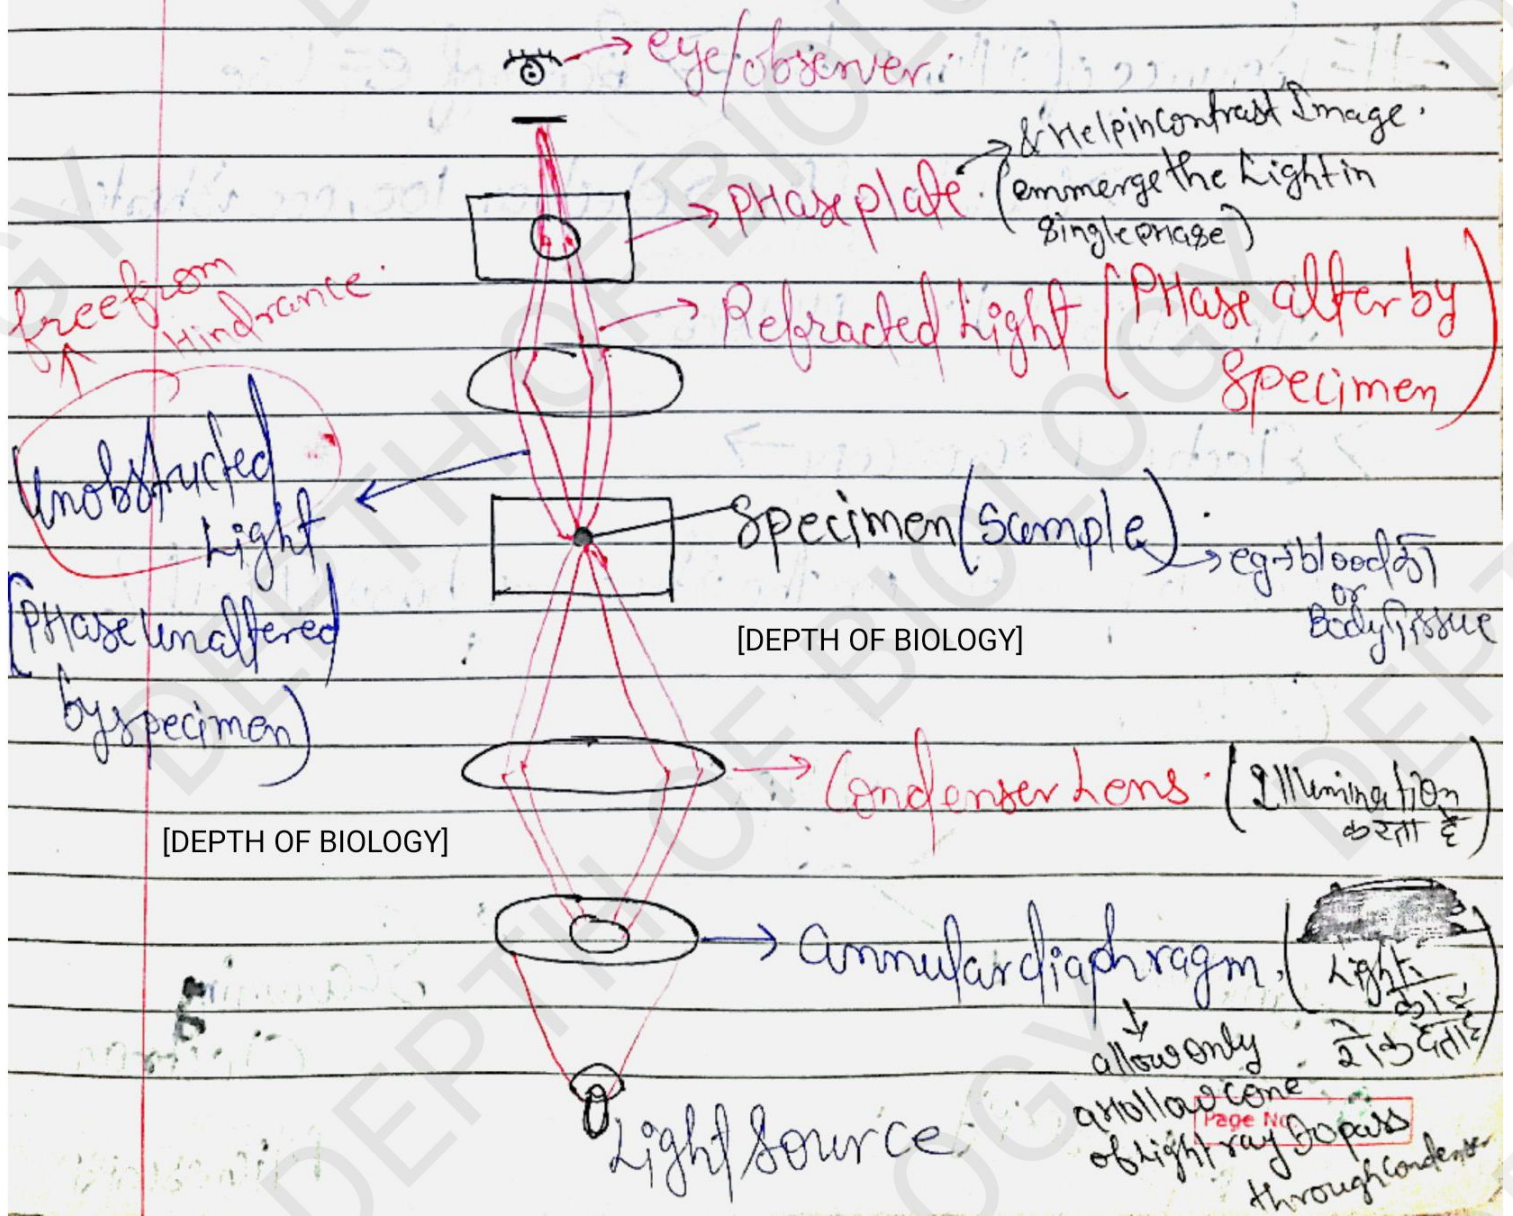 eye/observer.
& Help in contrast Image.
PHase plate. (emmerge the Light in
single phase)
free from
Hindrance.
Refracted Light (PHase alter by
specimen)
Unobstructed
Light
(PHase unaltered
by specimen)
Specimen (Sample).
eg→ blood को
or
Body Tissue
[DEPTH OF BIOLOGY]
Condenser Lens. (Illumination
करता है)
[DEPTH OF BIOLOGY]
annular diaphragm. (Light
को
रोक देता है)
allow only
a Hollow cone
of Light ray to pass
through condenser
Page No
Light Source
DEPTH OF BIOLOGY